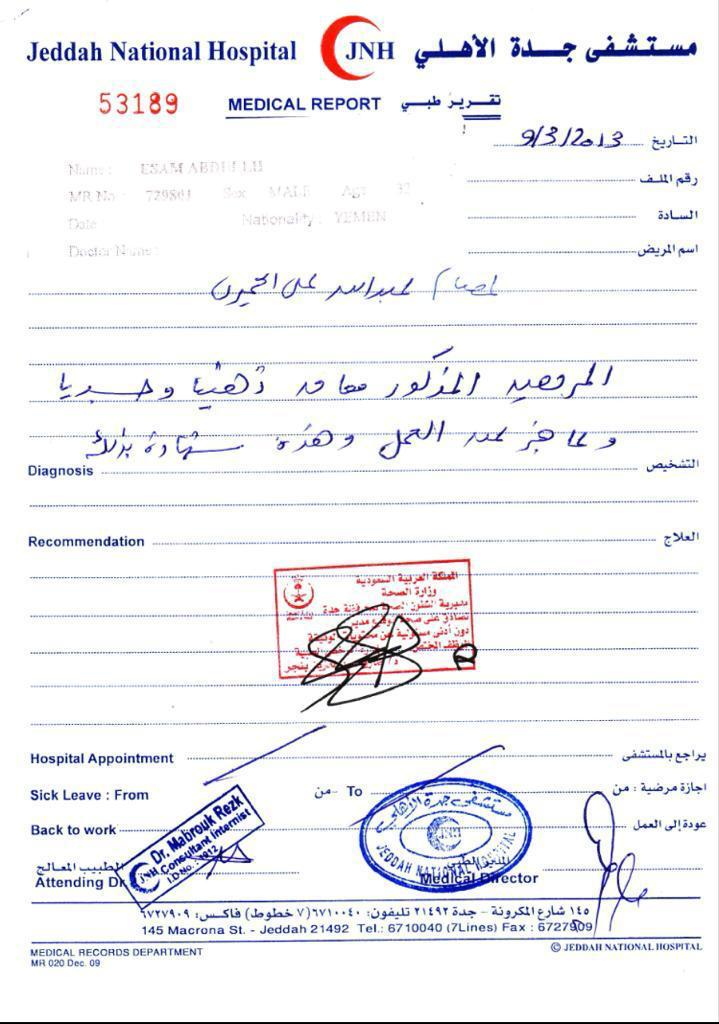 Jeddah National Hospital JNH مستشفى جدة الأهلي
53189 MEDICAL REPORT تقرير طبي
التاريخ 9/3/2013
Name : ESAM ABDULLH
رقم الملف
MR No : 729801 Sex MALE Age 32
السادة
Date Nationality : YEMEN
اسم المريض
Doctor Name:
عصام عبدالله علي
المريض المذكور معاق ذهنيا وجسديا
وعاجز عن العمل وهذه شهادة بذلك
Diagnosis التشخيص
Recommendation العلاج
المملكة العربية السعودية
وزارة الصحة
مديرية الشئون الصحية بمحافظة جدة
نصادق على صحة توقيع مدير
دون أدنى مسئولية عن محتويات الوثيقة
Hospital Appointment يراجع بالمستشفى
Sick Leave : From من - To اجازة مرضية : من
Back to work عودة إلى العمل
Dr. Mabrouk Rezk
Consultant Internist
JNH
مستشفى جدة الأهلي
JNH
JEDDAH NATIONAL HOSPITAL
الطبيب المعالج
Attending Dr Medical Director
١٤٥ شارع المكرونة - جدة ٢١٤٩٢ تليفون: ٦٧١٠٠٤٠ (٧ خطوط) فاكس: ٦٧٢٧٩٠٩
145 Macrona St. - Jeddah 21492 Tel.: 6710040 (7Lines) Fax : 6727909
MEDICAL RECORDS DEPARTMENT © JEDDAH NATIONAL HOSPITAL
MR 020 Dec. 09